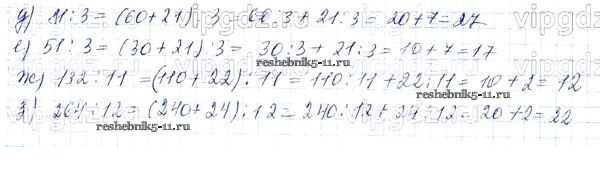 д) 81:3 = (60+21):3 = 60:3 + 21:3 = 20+7 = 27
е) 51:3 = (30+21):3 = 30:3 + 21:3 = 10+7 = 17
ж) 132:11 = (110+22):11 = 110:11 + 22:11 = 10+2 = 12
reshebnik5-11.ru
reshebnik5-11.ru
з) 264:12 = (240+24):12 = 240:12 + 24:12 = 20+2 = 22